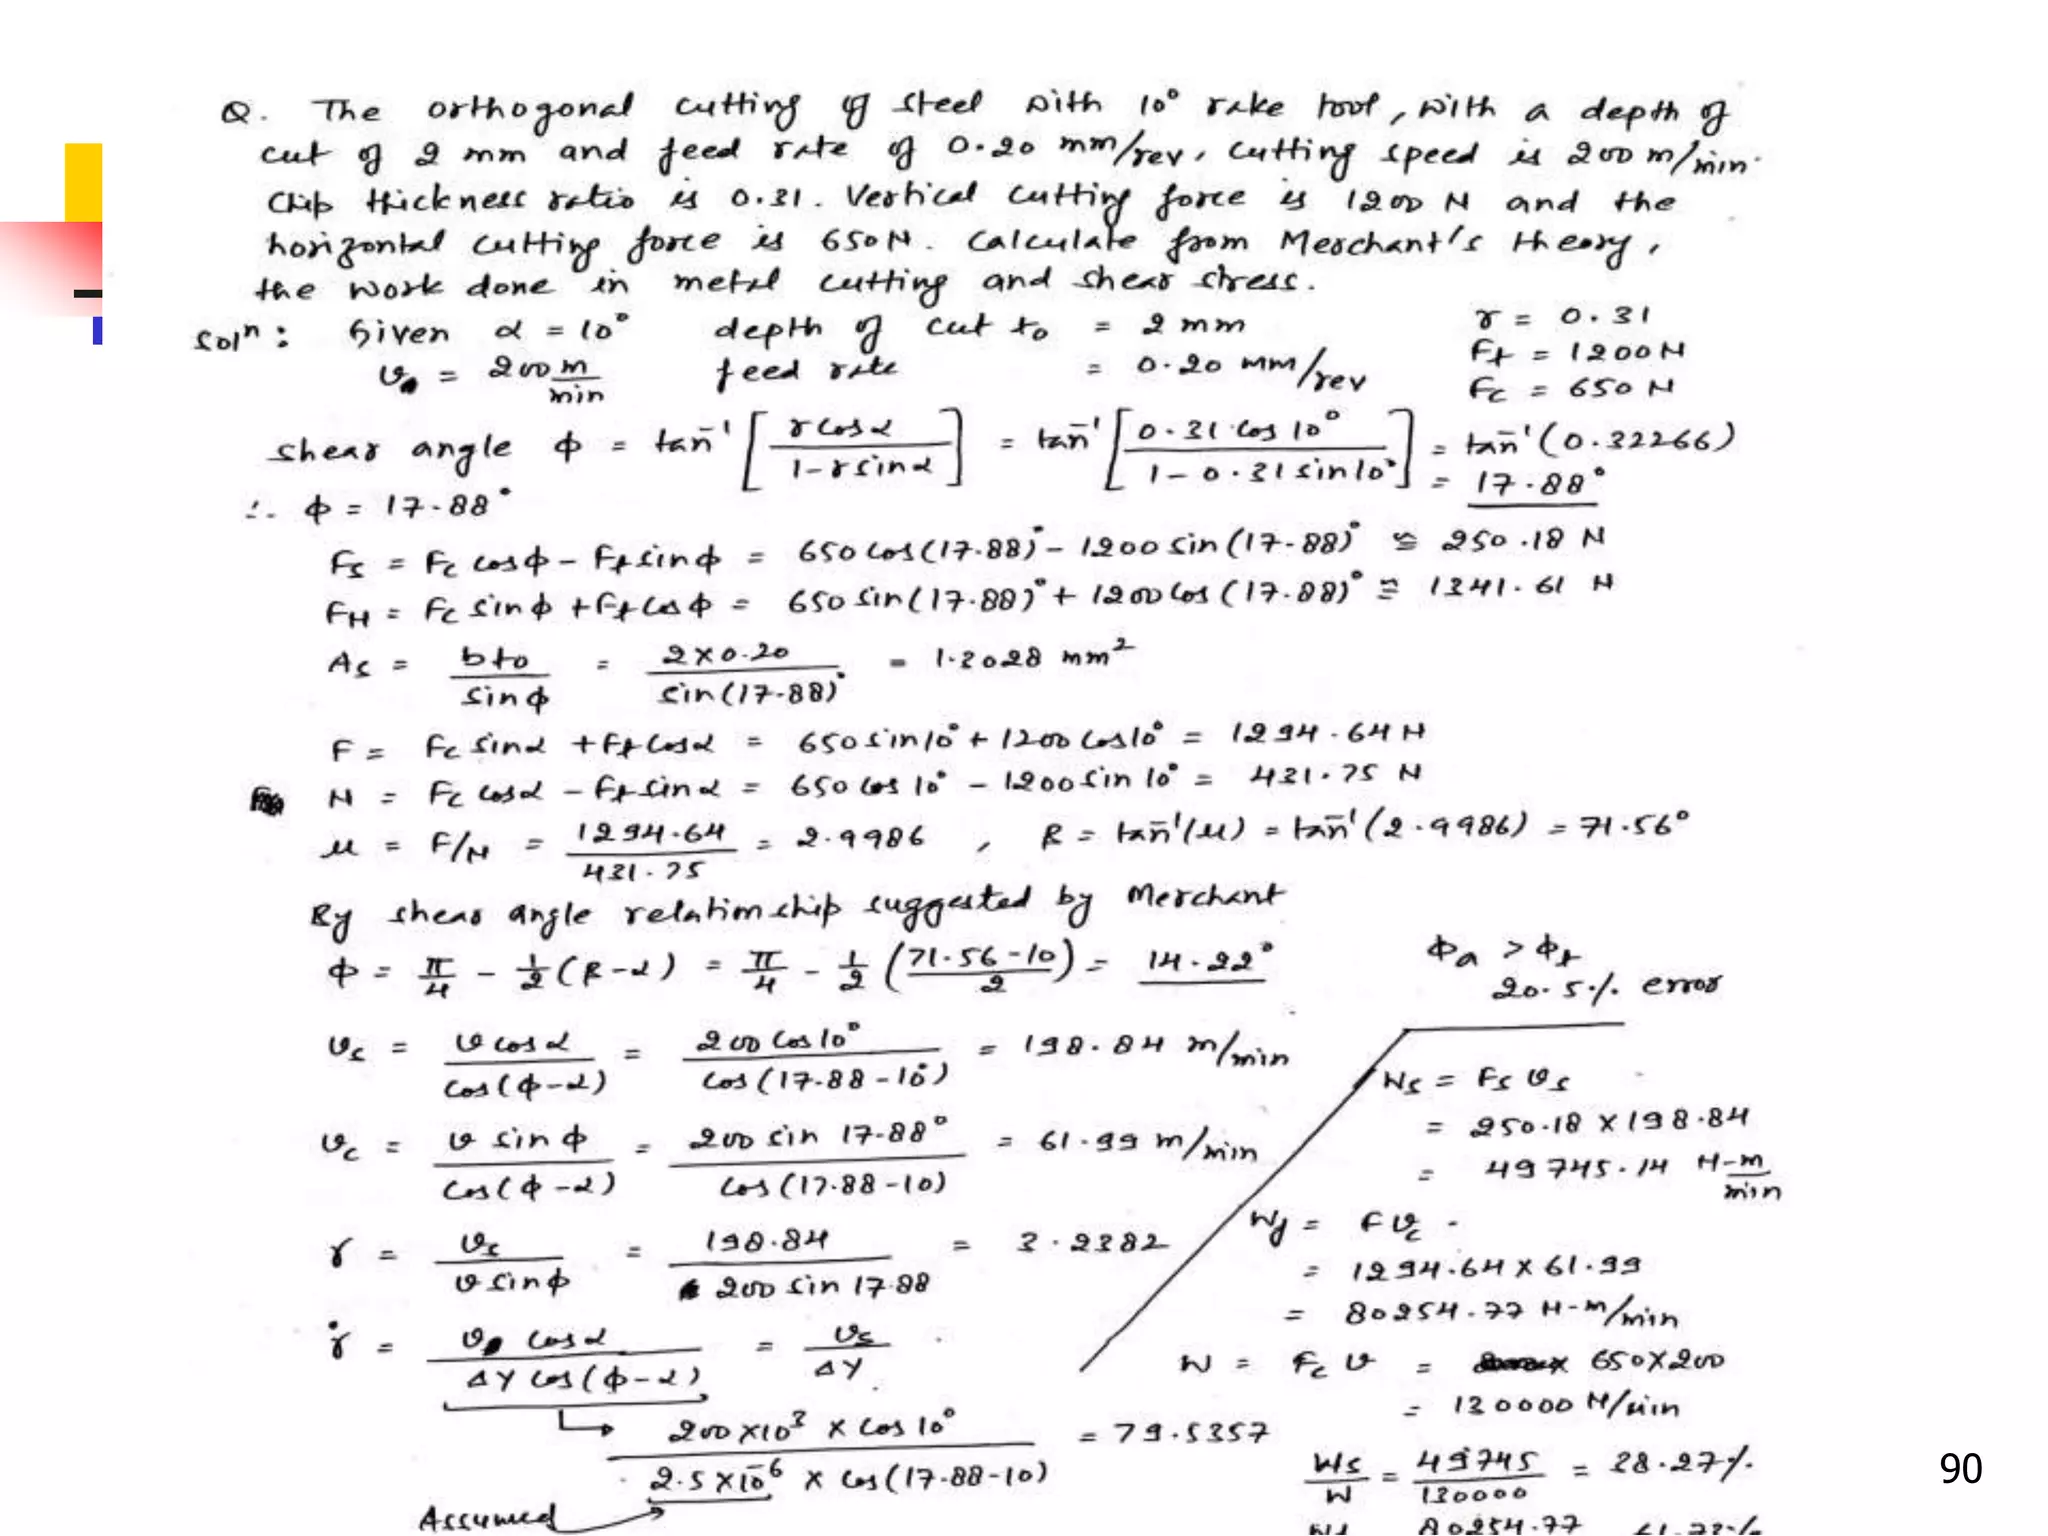 Q. The orthogonal cutting of steel with 10° rake tool, with a depth of
cut of 2 mm and feed rate of 0.20 mm/rev, cutting speed is 200 m/min.
Chip thickness ratio is 0.31. Vertical cutting force is 1200 N and the
horizontal cutting force is 650N. Calculate from Merchant's theory,
the work done in metal cutting and shear stress.
Solⁿ: Given α = 10° depth of cut t₀ = 2 mm r = 0.31
v = 200 m/min feed rate = 0.20 mm/rev Ft = 1200N
Fc = 650 N
shear angle ϕ = tan⁻¹[r cosα / 1-r sinα] = tan⁻¹[0.31 cos 10° / 1-0.31 sin10°] = tan⁻¹(0.32266)
= 17.88°
∴ ϕ = 17.88°
Fs = Fc cosϕ - Ft sinϕ = 650 cos(17.88)° - 1200 sin(17.88)° ≅ 250.18 N
FH = Fc sinϕ + Ft cosϕ = 650 sin(17.88)° + 1200 cos(17.88)° ≅ 1341.61 N
As = bt₀ / sinϕ = 2×0.20 / sin(17.88)° = 1.3028 mm²
F = Fc sinα + Ft cosα = 650 sin10° + 1200 cos10° = 1294.64 N
N = Fc cosα - Ft sinα = 650 cos 10° - 1200 sin 10° = 431.75 N
μ = F/N = 1294.64 / 431.75 = 2.9986 , β = tan⁻¹(μ) = tan⁻¹(2.9986) = 71.56°
By shear angle relationship suggested by Merchant
ϕ = π/4 - 1/2 (β-α) = π/4 - 1/2 (71.56-10 / 2) = 14.22°
ϕa > ϕt
20.5% error
vs = v cosα / cos(ϕ-α) = 200 cos10° / cos(17.88-10°) = 198.84 m/min
vc = v sinϕ / cos(ϕ-α) = 200 sin 17.88° / cos(17.88-10) = 61.99 m/min
γ = vs / v sinϕ = 198.84 / 200 sin 17.88 = 3.2382
γ̇ = v cosα / ΔY cos(ϕ-α) = vs / ΔY
200×10³ × cos10° / 2.5×10⁻⁶ × cos(17.88-10) = 79.5357
Assumed
Ws = Fs vs
= 250.18 × 198.84
= 49745.14 N-m/min
Wf = F vc
= 1294.64 × 61.99
= 80254.77 N-m/min
W = Fc v = 650×200
= 130000 N/min
Ws / W = 49745 / 130000 = 38.27%
80254.77
90